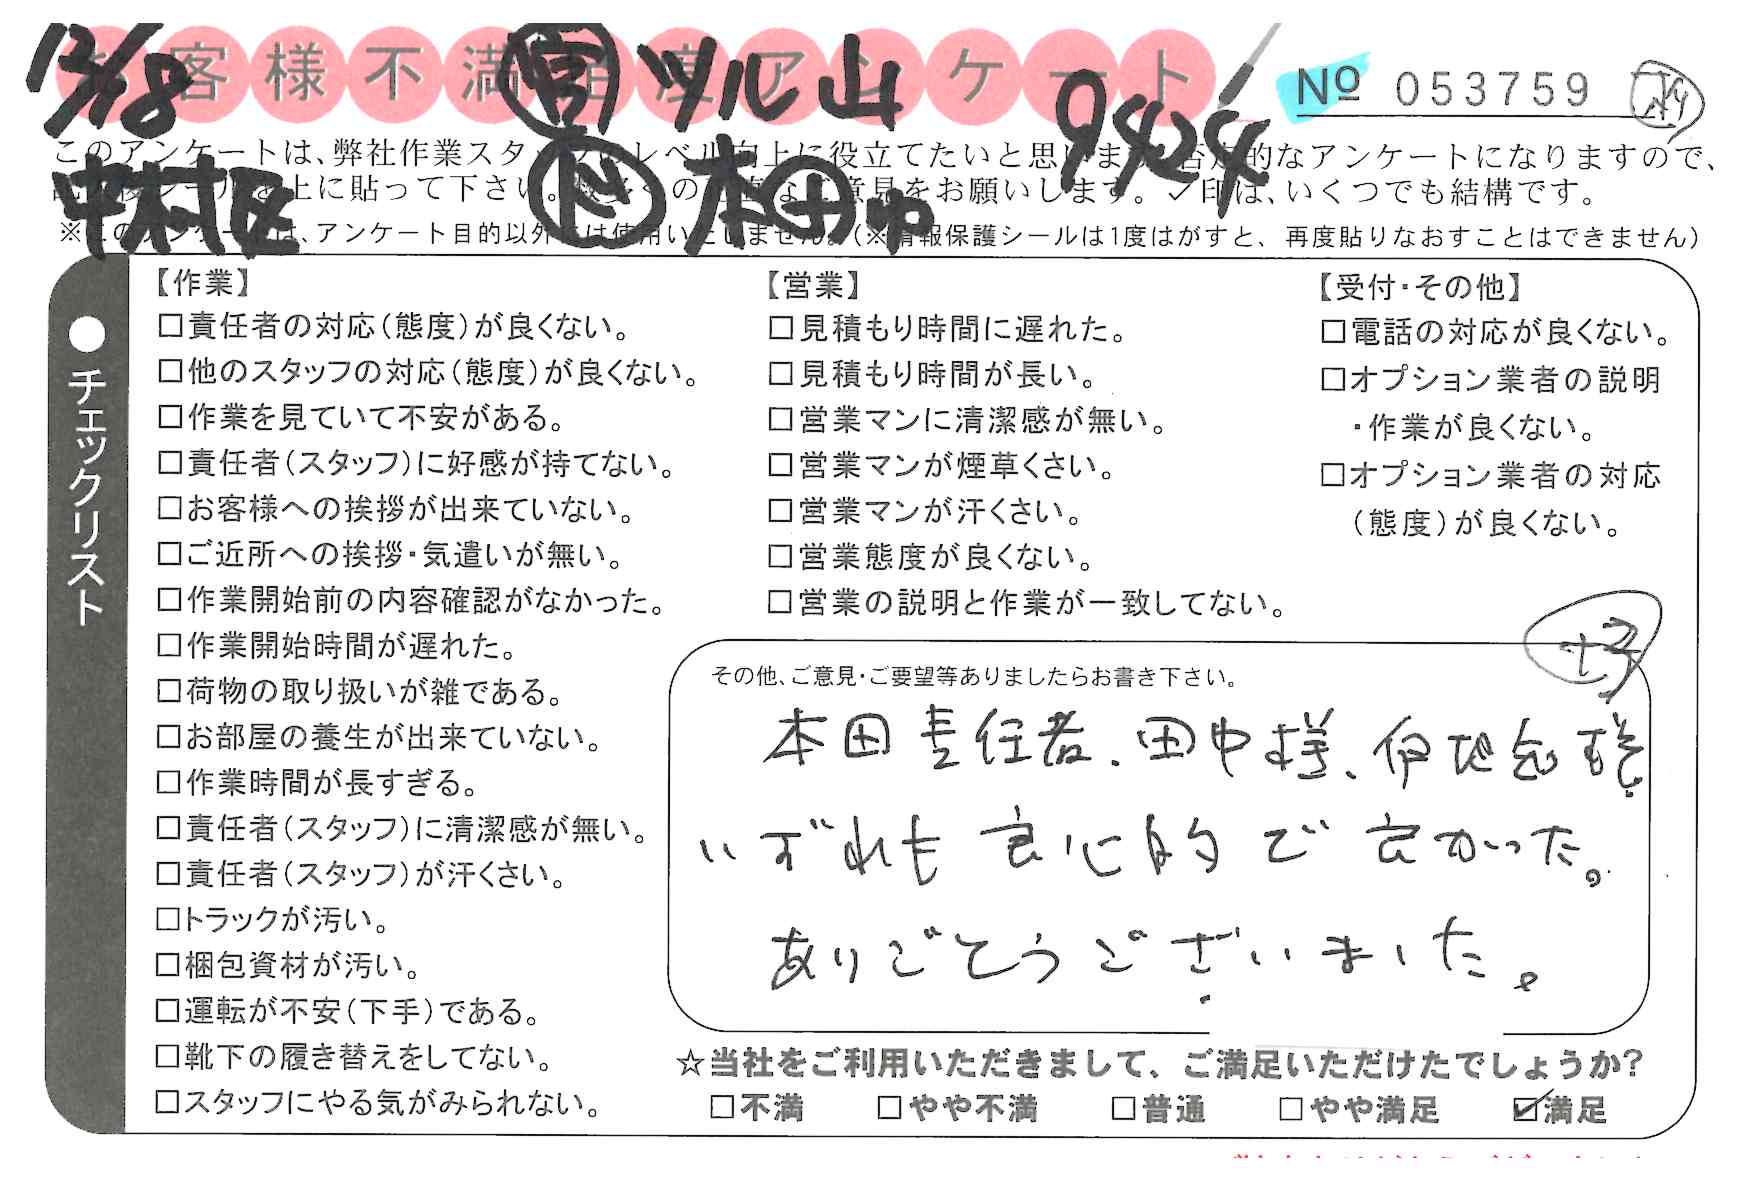 お客様不満足度アンケート
12/18 営 ツル山 9424
№ 053759
中村区 本田
このアンケートは、弊社作業スタッフのレベル向上に役立てたいと思います。否定的なアンケートになりますので、
上に貼って下さい。数多くの ご意見をお願いします。✓印は、いくつでも結構です。
※このアンケートは、アンケート目的以外には使用いたしません。(※情報保護シールは1度はがすと、再度貼りなおすことはできません)
●チェックリスト
【作業】
□責任者の対応(態度)が良くない。
□他のスタッフの対応(態度)が良くない。
□作業を見ていて不安がある。
□責任者(スタッフ)に好感が持てない。
□お客様への挨拶が出来ていない。
□ご近所への挨拶・気遣いが無い。
□作業開始前の内容確認がなかった。
□作業開始時間が遅れた。
□荷物の取り扱いが雑である。
□お部屋の養生が出来ていない。
□作業時間が長すぎる。
□責任者(スタッフ)に清潔感が無い。
□責任者(スタッフ)が汗くさい。
□トラックが汚い。
□梱包資材が汚い。
□運転が不安(下手)である。
□靴下の履き替えをしてない。
□スタッフにやる気がみられない。
【営業】
□見積もり時間に遅れた。
□見積もり時間が長い。
□営業マンに清潔感が無い。
□営業マンが煙草くさい。
□営業マンが汗くさい。
□営業態度が良くない。
□営業の説明と作業が一致してない。
【受付・その他】
□電話の対応が良くない。
□オプション業者の説明
・作業が良くない。
□オプション業者の対応
(態度)が良くない。
その他、ご意見・ご要望等ありましたらお書き下さい。
本田責任者、田中様、伊地知様
いずれも良心的で良かった。
ありごとうございました。
☆当社をご利用いただきまして、ご満足いただけたでしょうか?
□不満 □やや不満 □普通 □やや満足 ☑満足